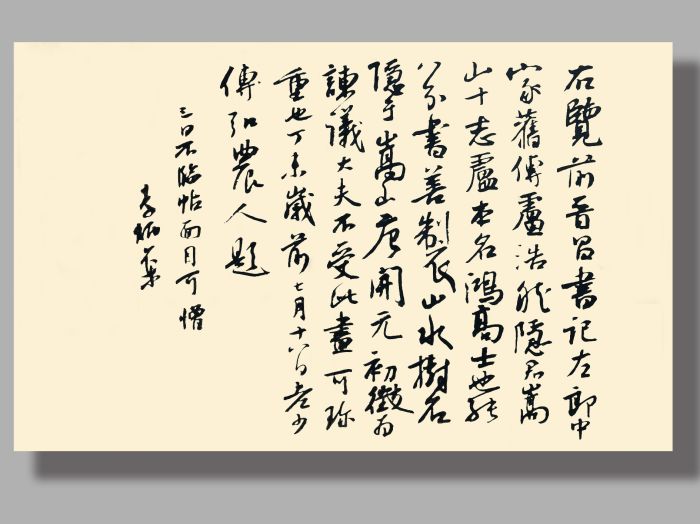 右覽前晋昌書記左郎中
家舊傳盧浩然隱居嵩
山十志盧本名鴻高士也能
八分書善製山水樹石
隱于嵩山唐開元初徵為
諫議大夫不受此畫可珍
重也丁未歲前七月十八日老少
傅弘農人題
三日不臨帖面目可憎